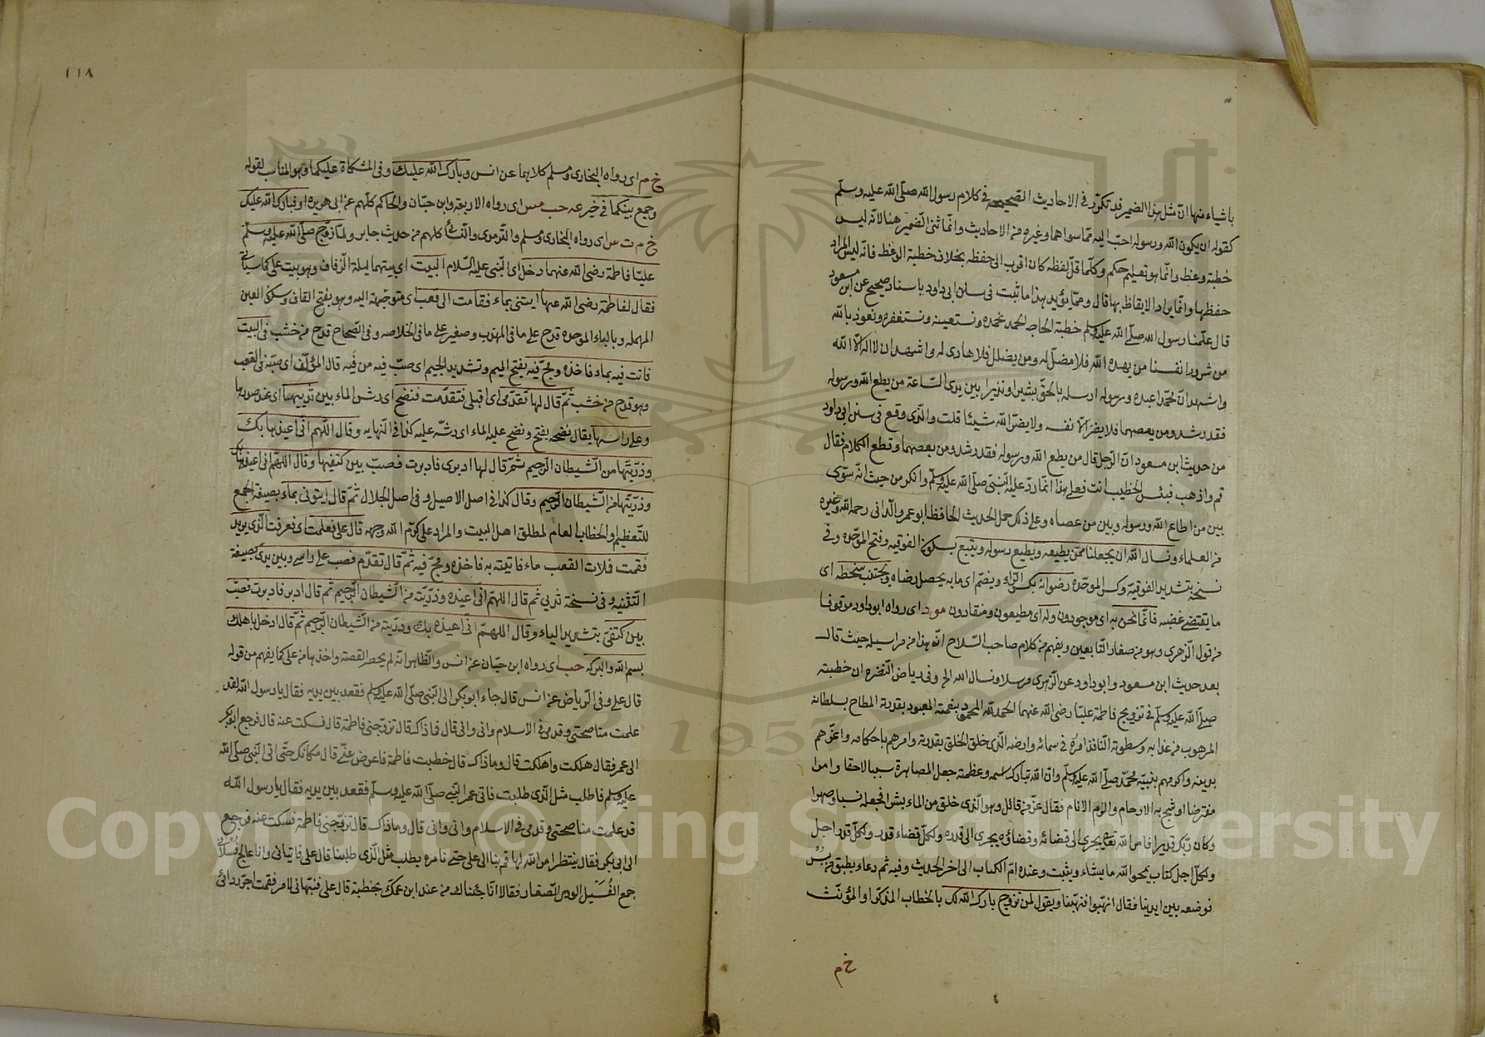 باشياء منها ان مثل هذا الضمير قد تكرر في الاحاديث الصحيحة في كلام رسول الله صلى الله عليه وسلم
كقوله ان يكون الله ورسوله احب اليه مما سواهما وغيره من الاحاديث وانما ثنى الضمير هنا لانه ليس
خطبة وعظ وانما هو تعليم حكم وكلما قل لفظه كان اقرب الى حفظه بخلاف خطبة الوعظ فانه ليس المراد
حفظها وانما يراد الايقاظ بها قال ومما يؤيد هذا ما ثبت في سنن ابي داود باسناد صحيح عن ابن مسعود
قال علمنا رسول الله صلى الله عليه وسلم خطبة الحاجة الحمد لله نحمده ونستعينه ونستغفره ونعوذ بالله
من شرور انفسنا من يهده الله فلا مضل له ومن يضلل فلا هادي له واشهد ان لا اله الا الله
واشهد ان محمدا عبده ورسوله ارسله بالحق بشيرا ونذيرا بين يدي الساعة من يطع الله ورسوله
فقد رشد ومن يعصهما فلا يضر الا نفسه ولا يضر الله شيئا قلت والذي وقع في سنن ابي داود
من حديث ابن مسعود ان الرجل قال من يطع الله ورسوله فقد رشد ومن يعصهما وقطع الكلام فقال
قم واذهب فبئس الخطيب انت فعلى هذا انما رد عليه النبي صلى الله عليه وسلم وانكر من حيث انه سوى
بين من اطاع الله ورسوله وبين من عصاه وعلى ذلك حمل الحديث الحافظ ابو عمرو الداني رحمه الله وغيره
من العلماء ونسال الله ان يجعلنا ممن يطيعه ويطيع رسوله ويتبع بسكون الفوقية وفتح الموحدة وفي
نسخة بتشديد الفوقية وكسر الموحدة رضوانه بكسر الراء ويضم اي ما به يحصل رضاه ويجتنب سخطه اي
ما يقتضي غضبه فانما نحن به اي موجودون وله اي مطيعون ومنقادون مو د اي رواه ابو داود موقوفا
من قول الزهري وهو من صغار التابعين ويفهم من كلام صاحب السلاح انه هذا من مراسيله حيث قال
بعد حديث ابن مسعود وابو داود عن الزهري مرسلا ونسال الله الخ وفي رياض النضرة ان خطبته
صلى الله عليه وسلم في تزويج فاطمة عليا رضي الله عنهما الحمد لله المحمود بنعمته المعبود بقدرته المطاع بسلطانه
المرهوب من عذابه وسطوته النافذ امره في سمائه وارضه الذي خلق الخلق بقدرته وامرهم باحكامه واعزهم
بدينه واكرمهم بنبيه محمد صلى الله عليه وسلم وان الله تبارك اسمه وعظمته جعل المصاهرة سببا لاحقا وامرا
مفترضا اوشج به الارحام والزم الانام فقال عز من قائل وهو الذي خلق من الماء بشرا فجعله نسبا وصهرا
وكان ربك قديرا فامر الله تعالى يجري الى قضائه وقضائه يجري الى قدره ولكل قضاء قدر ولكل قدر اجل
ولكل اجل كتاب يمحو الله ما يشاء ويثبت وعنده ام الكتاب الى اخر الحديث وفيه ثم دعا بطبق من بسر
فوضعه بين ايدينا فقال انهبوا فنهبنا ويقول لمن تزوج بارك الله لك بالخطاب المذكر او المؤنث
خ م
١١٨
خ م اي رواه البخاري ومسلم كلاهما عن انس وبارك الله عليك وفي المشكاة عليكما وهو المناسب لقوله
وجمع بينكما في خير عه حب مس اي رواه الاربعة وابن حبان والحاكم كلهم عن ابي هريرة او فبارك الله عليك
خ م ت س اي رواه البخاري ومسلم والترمذي والنسائي كلهم من حديث جابر ولما زوج صلى الله عليه وسلم
عليا فاطمة رضي الله عنهما دخل اي النبي عليه السلام البيت اي بيتهما ليلة الزفاف وهو بيت علي كما سياتي
فقال لفاطمة رضي الله عنها ايتيني بماء فقامت الى قعب اي متوجهة اليه وهو بفتح القاف وسكون العين
المهملة وبالباء الموحدة قدح على ما في المهذب وصغير على ما في الخلاصة وفي الصحاح قدح من خشب في البيت
فاتت فيه بماء فاخذه ومج فيه بفتح الميم وتشديد الجيم اي صب فيه من فيه قال المؤلف اي صبه في القعب
وهو قدح من خشب ثم قال لها تقدمي اي اقبلي فتقدمت فنضح اي رش الماء بين ثدييها اي على صدرها
وعلى راسها يقال نضحه بفتح ونضح عليه الماء اي رشه عليه كذا في النهاية وقال اللهم اني اعيذها بك
وذريتها من الشيطان الرجيم ثم قال لها ادبري فادبرت فصب بين كتفيها وقال اللهم اني اعيذها بك
وذريتها من الشيطان الرجيم وقال كذا في اصل الاصيل وفي اصل الجلال ثم قال ايتوني بماء بصيغة الجمع
للتعظيم او الخطاب العام لمطلق اهل البيت والمراد علي كرم الله وجهه قال علي فعلمت اي فعرفت الذي يريد
فقمت فملات القعب ماء فاتيته به فاخذه ومج فيه ثم قال تقدم فصب على راسي وبين يدي بصيغة
التثنية وفي نسخة ثديي ثم قال اللهم اني اعيذه وذريته من الشيطان الرجيم ثم قال ادبر فادبرت فصب
بين كتفي بتشديد الياء وقال اللهم اني اعيذه بك وذريته من الشيطان الرجيم ثم قال ادخل باهلك
بسم الله والبركة حب اي رواه ابن حبان عن انس والظاهر انه لم يحضر القصة واخذها من علي كما يفهم من قوله
قال علي وفي الرياض عن انس قال جاء ابو بكر الى النبي صلى الله عليه وسلم فقعد بين يديه فقال يا رسول الله لقد
علمت مناصحتي وقدمي في الاسلام واني واني قال فما ذاك قال تزوجني فاطمة قال فسكت عنه قال فرجع ابو بكر
الى عمر فقال هلكت واهلكت قال وما ذاك قال خطبت فاطمة فاعرض عني قال مكانك حتى اتي النبي صلى الله
عليه وسلم فاطلب مثل الذي طلبت فاتى عمر النبي صلى الله عليه وسلم فقعد بين يديه فقال يا رسول الله
قد علمت مناصحتي وقدمي في الاسلام واني واني قال وما ذاك قال تزوجني فاطمة فسكت عنه فرجع
الى ابي بكر فقال ينتظر امر الله لها قم بنا الى علي حتى نامره يطلب مثل الذي طلبنا قال علي فاتياني وانا اعالج فسيلا
جمع الفسيل الودي الصغار فقالا انا جئناك من عند ابن عمك بخطبة قال علي فنبهاني لامر فقمت اجر ردائي